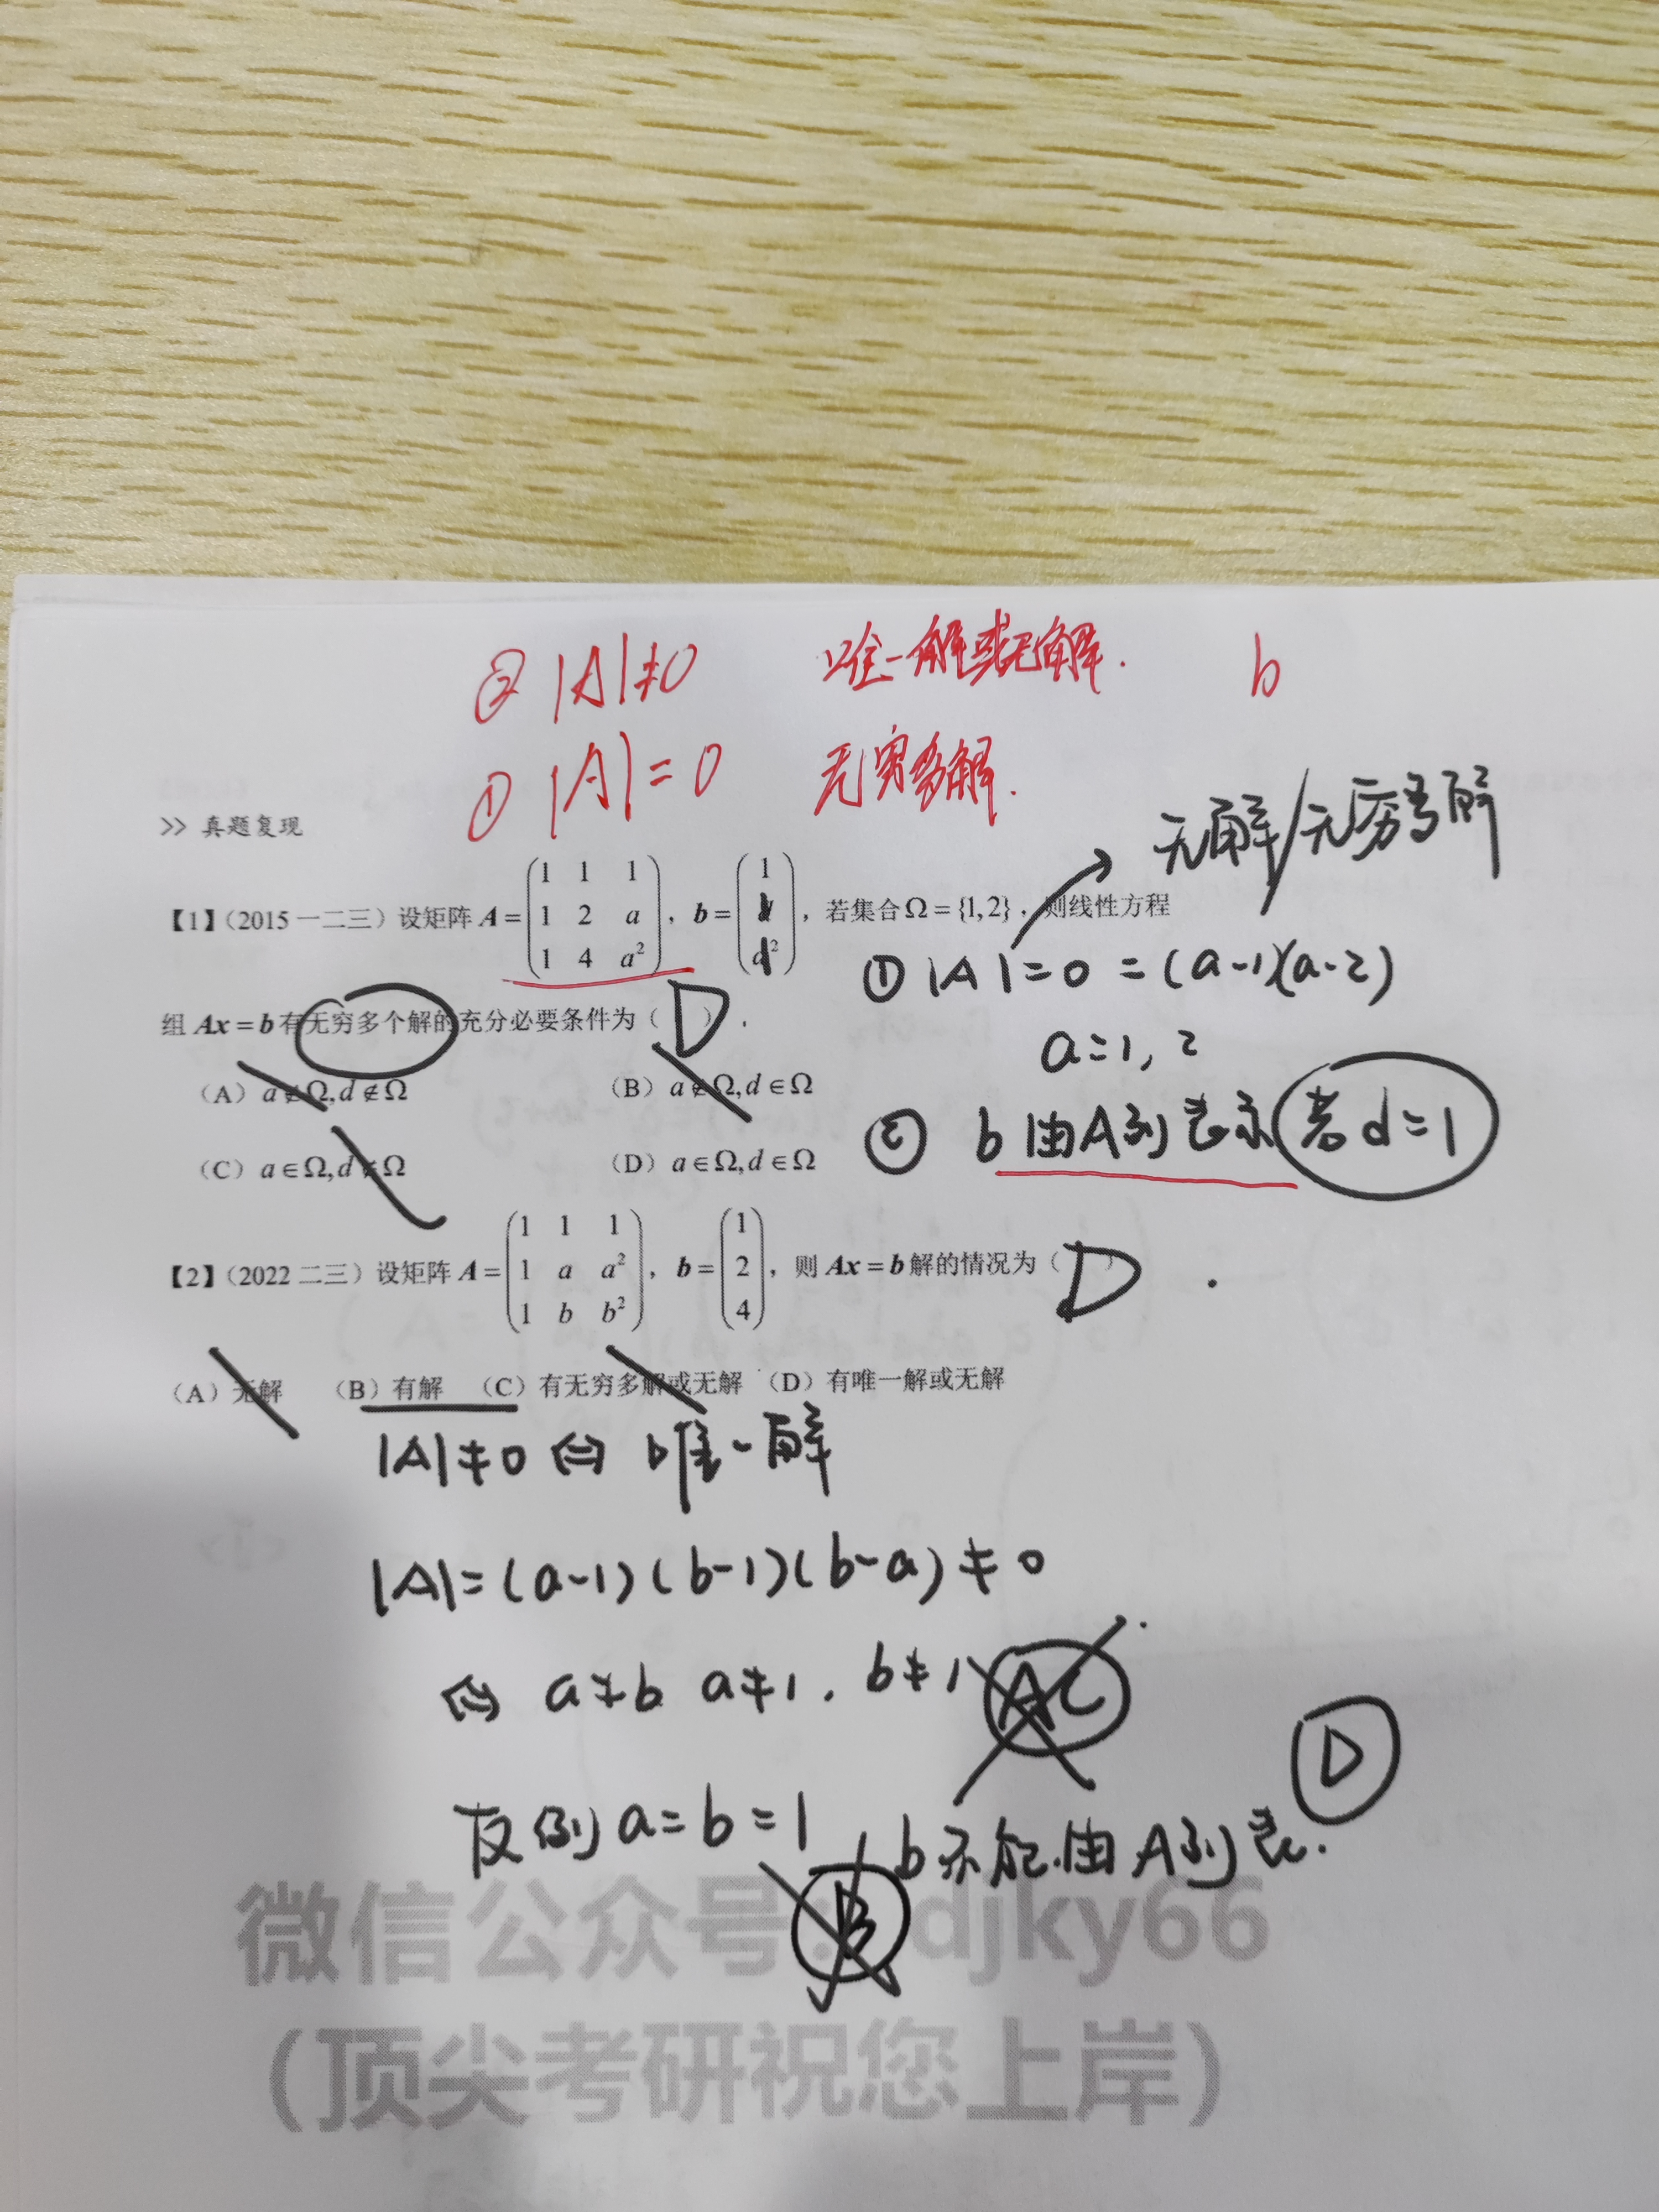 ② |A|≠0 唯一解或无解. b
① |A|=0 无穷多解.
无解/无穷多解
>> 真题复现
【1】(2015 一二三) 设矩阵 A = (1 1 1; 1 2 a; 1 4 a²), b = (1; d; d²), 若集合 Ω = {1,2}, 则线性方程
① |A|=0 =(a-1)(a-2)
组 Ax = b 有无穷多个解的充分必要条件为( D ).
a=1, 2
(A) a∉Ω, d∉Ω (B) a∉Ω, d∈Ω
② b 由A列表示 若d=1
(C) a∈Ω, d∉Ω (D) a∈Ω, d∈Ω
【2】(2022 二三) 设矩阵 A = (1 1 1; 1 a a²; 1 b b²), b = (1; 2; 4), 则 Ax = b 解的情况为( D ).
(A) 无解 (B) 有解 (C) 有无穷多解或无解 (D) 有唯一解或无解
|A|≠0 ⇔ 唯一解
|A|=(a-1)(b-1)(b-a)≠0
⇔ a≠b a≠1, b≠1 AC
D
反例 a=b=1 b不能由A列表.
B
微信公众号:djky66
(顶尖考研祝您上岸)